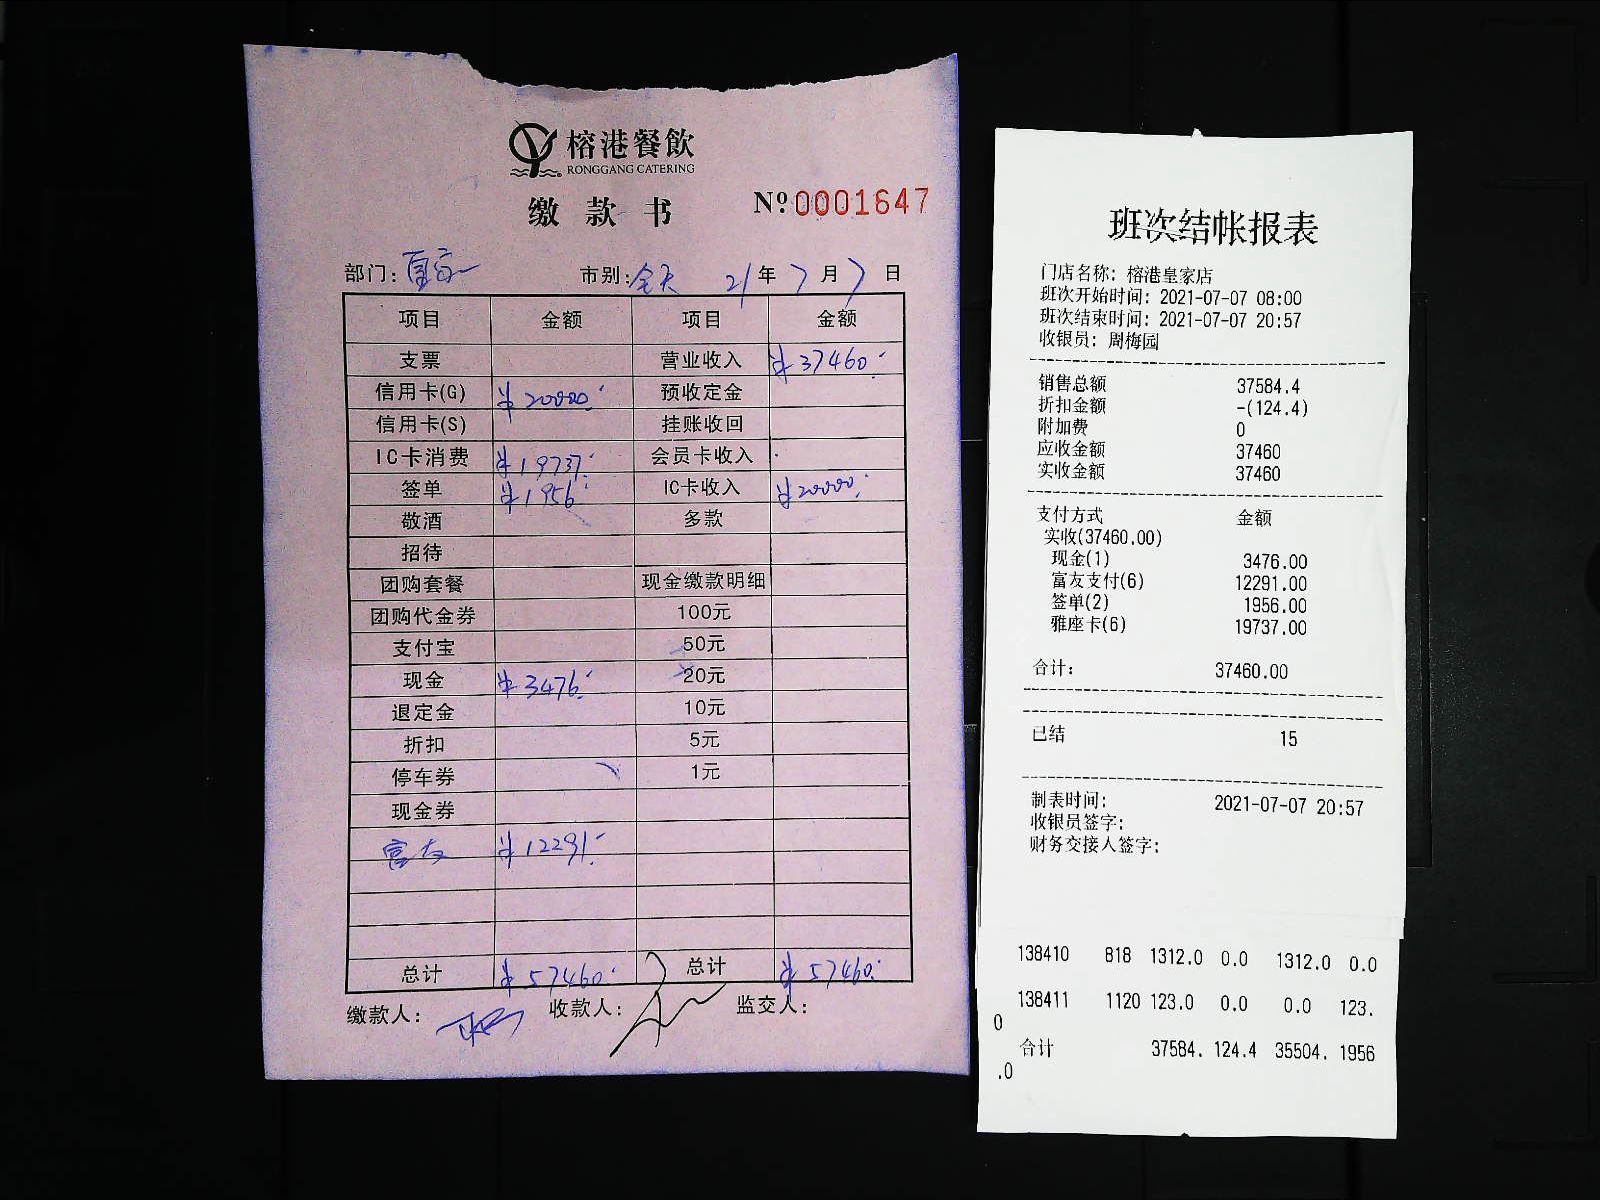 榕港餐飲
RONGGANG CATERING
缴款书 Nº 0001647
部门: 市别:全天 21年7月7日
项目 金额 项目 金额
支票 营业收入 ¥37460.-
信用卡(G) ¥20000.- 预收定金
信用卡(S) 挂账收回
IC卡消费 ¥19737.- 会员卡收入
签单 ¥1956.- IC卡收入 ¥20000.-
敬酒 多款
招待
团购套餐 现金缴款明细
团购代金券 100元
支付宝 50元
现金 ¥3476.- 20元
退定金 10元
折扣 5元
停车券 1元
现金券
富友 ¥12291.-
总计 ¥57460.- 总计 ¥57460.-
缴款人: 收款人: 监交人:
班次结帐报表
门店名称: 榕港皇家店
班次开始时间: 2021-07-07 08:00
班次结束时间: 2021-07-07 20:57
收银员: 周梅园
销售总额 37584.4
折扣金额 -(124.4)
附加费 0
应收金额 37460
实收金额 37460
支付方式 金额
实收(37460.00)
现金(1) 3476.00
富友支付(6) 12291.00
签单(2) 1956.00
雅座卡(6) 19737.00
合计: 37460.00
已结 15
制表时间: 2021-07-07 20:57
收银员签字:
财务交接人签字:
138410 818 1312.0 0.0 1312.0 0.0
138411 1120 123.0 0.0 0.0 123.
0
合计 37584. 124.4 35504. 1956
.0